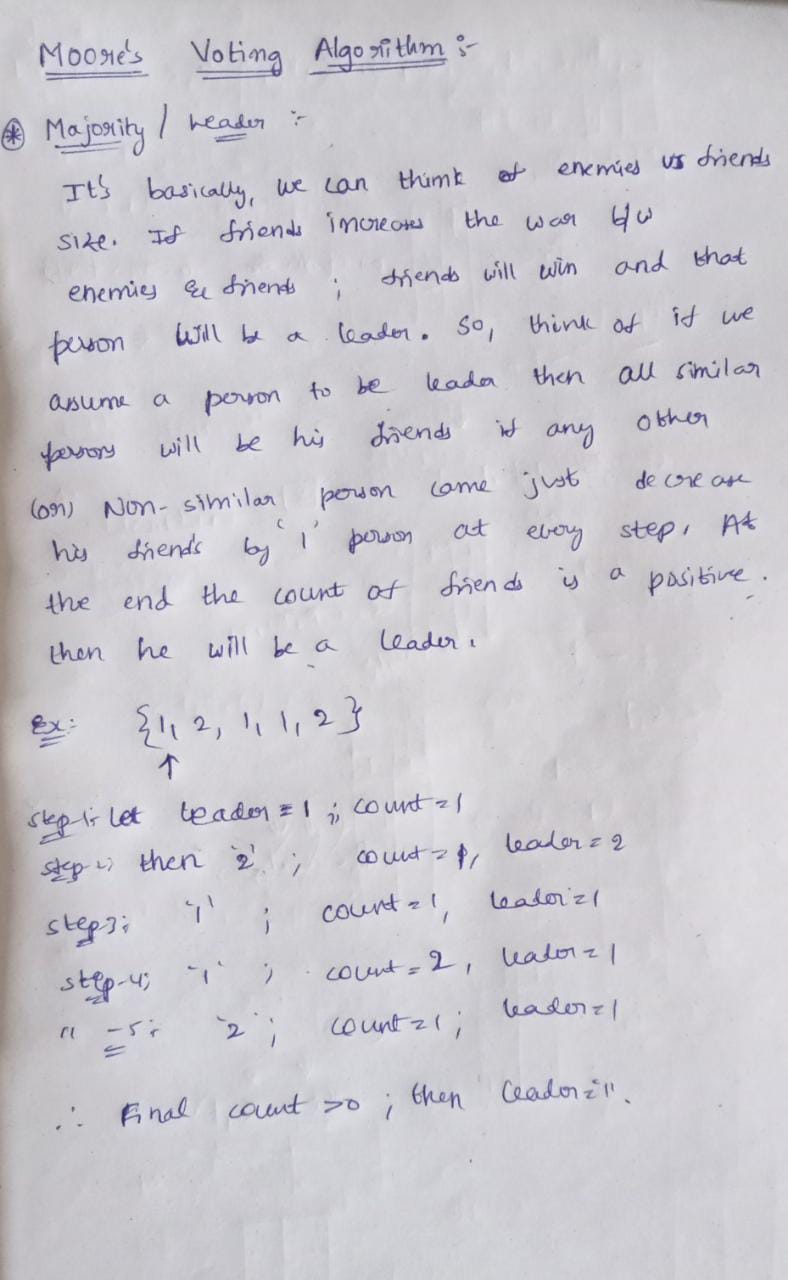 Moore's Voting Algorithm :-
* Majority / Leader :-
It's basically, we can think of enemies vs friends
size. If friends increases the war b/w
enemies & friends ; friends will win and that
person will be a leader. So, think of if we
assume a person to be leader then all similar
persons will be his friends if any other
(or) Non-similar person came just decrease
his friends by '1' person at every step. At
the end the count of friends is a positive.
then he will be a leader.
Ex: {1, 2, 1, 1, 2}
↑
step-1: Let leader = 1 ; count = 1
step 2: then '2' ; count = 1, leader = 2
step 3: '1' ; count = 1, leader = 1
step-4; '1' ; count = 2, leader = 1
" -5: '2' ; count = 1 ; leader = 1
∴ Final count >0 ; then leader = '1'.